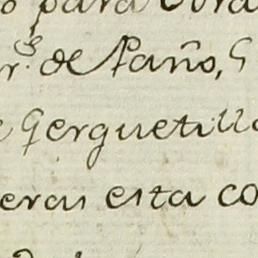 para
de Paño, G
Gerguetill
eras esta co